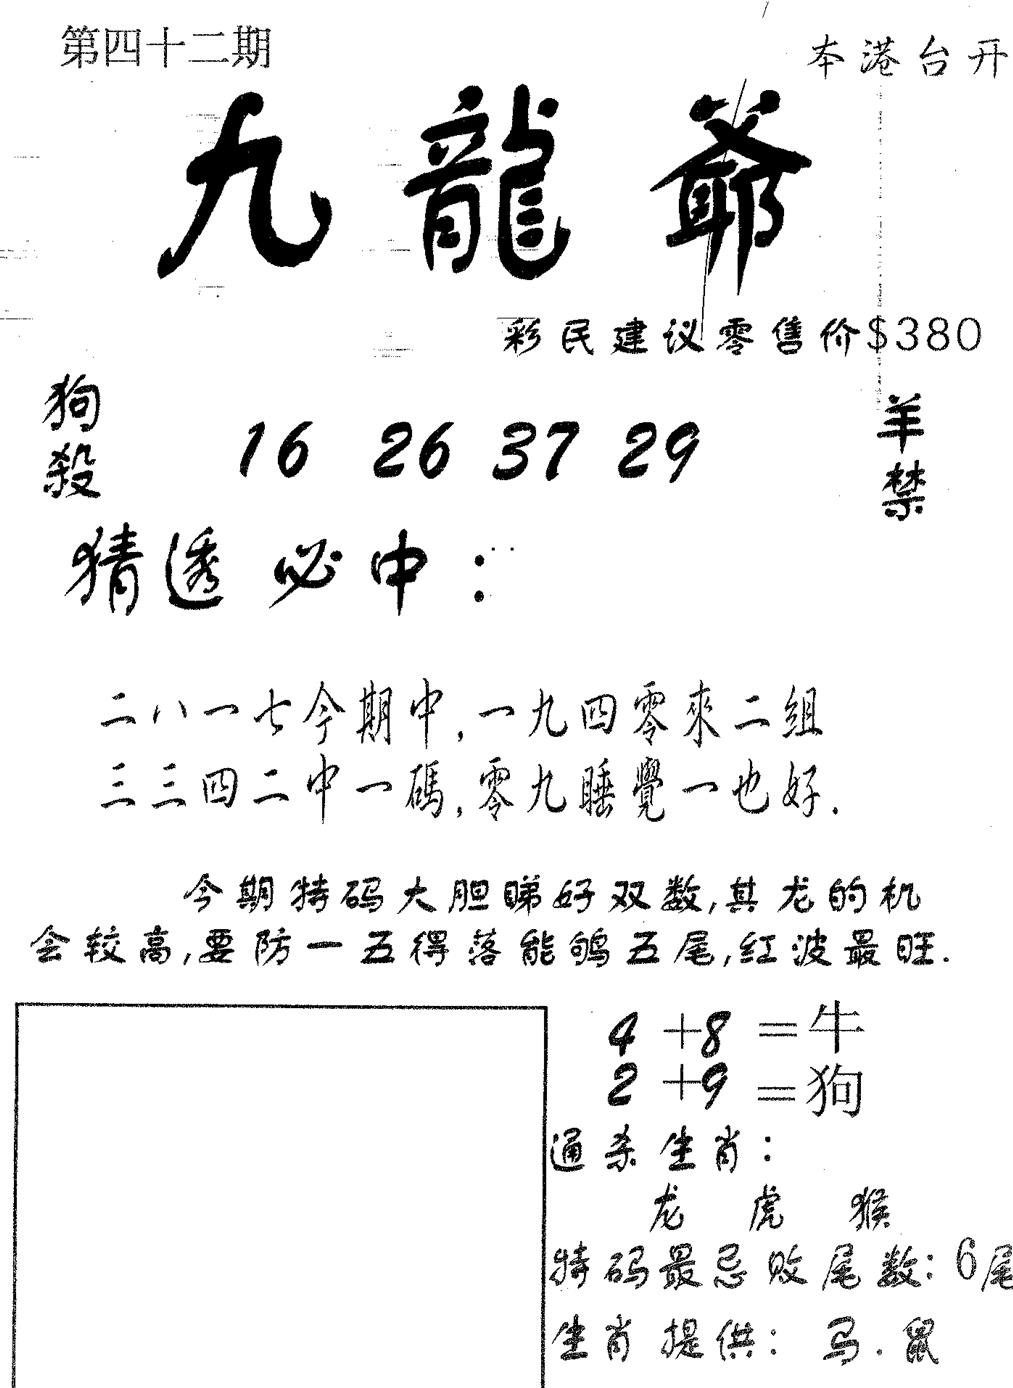 第四十二期
本港台开
九龍爺
彩民建议零售价$380
狗殺
16 26 37 29
羊禁
猜透必中：
二八一七今期中,一九四零來二組
三三四二中一碼,零九睡覺一也好.
今期特码大胆睇好双数,其龙的机
会较高,要防一五得落能鸲五尾,红波最旺.
4+8=牛
2+9=狗
通杀生肖：
龙 虎 猴
特码最忌败尾数：6尾
生肖提供：马.鼠